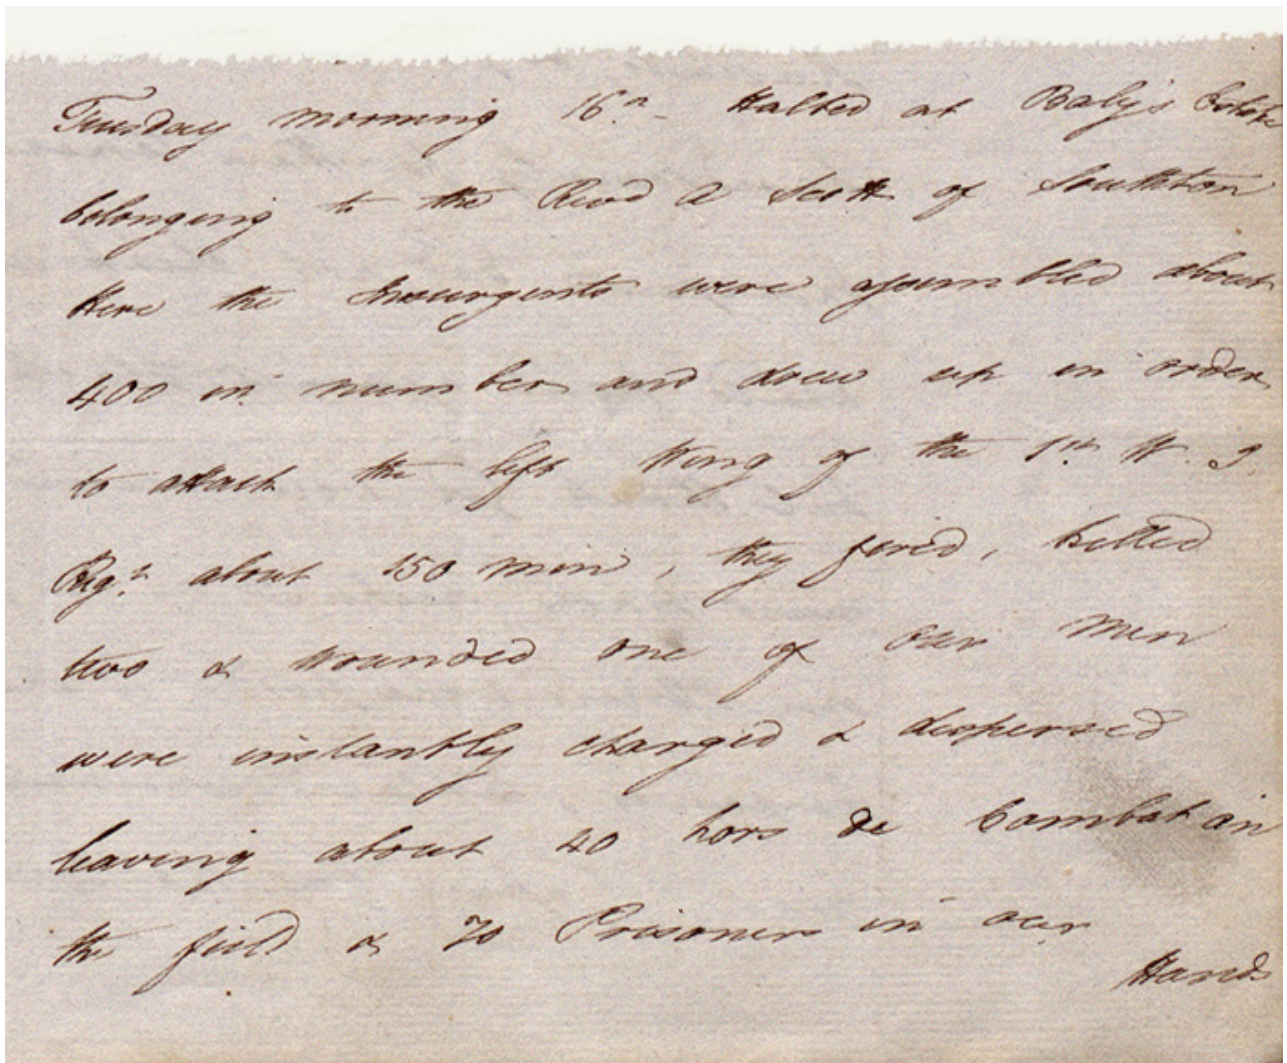 Tuesday morning 16th Halted at Baly's Estate
belonging to the Revd A Scott of Southton
Here the Insurgents were assembled about
400 in number and drew up in order
to attack the left Wing of the 1st W. I.
Regt. about 150 men, they fired, killed
two & wounded one of our men
were instantly charged & dispersed
leaving about 40 hors de Combat in
the field & 70 Prisoners in our
Hands